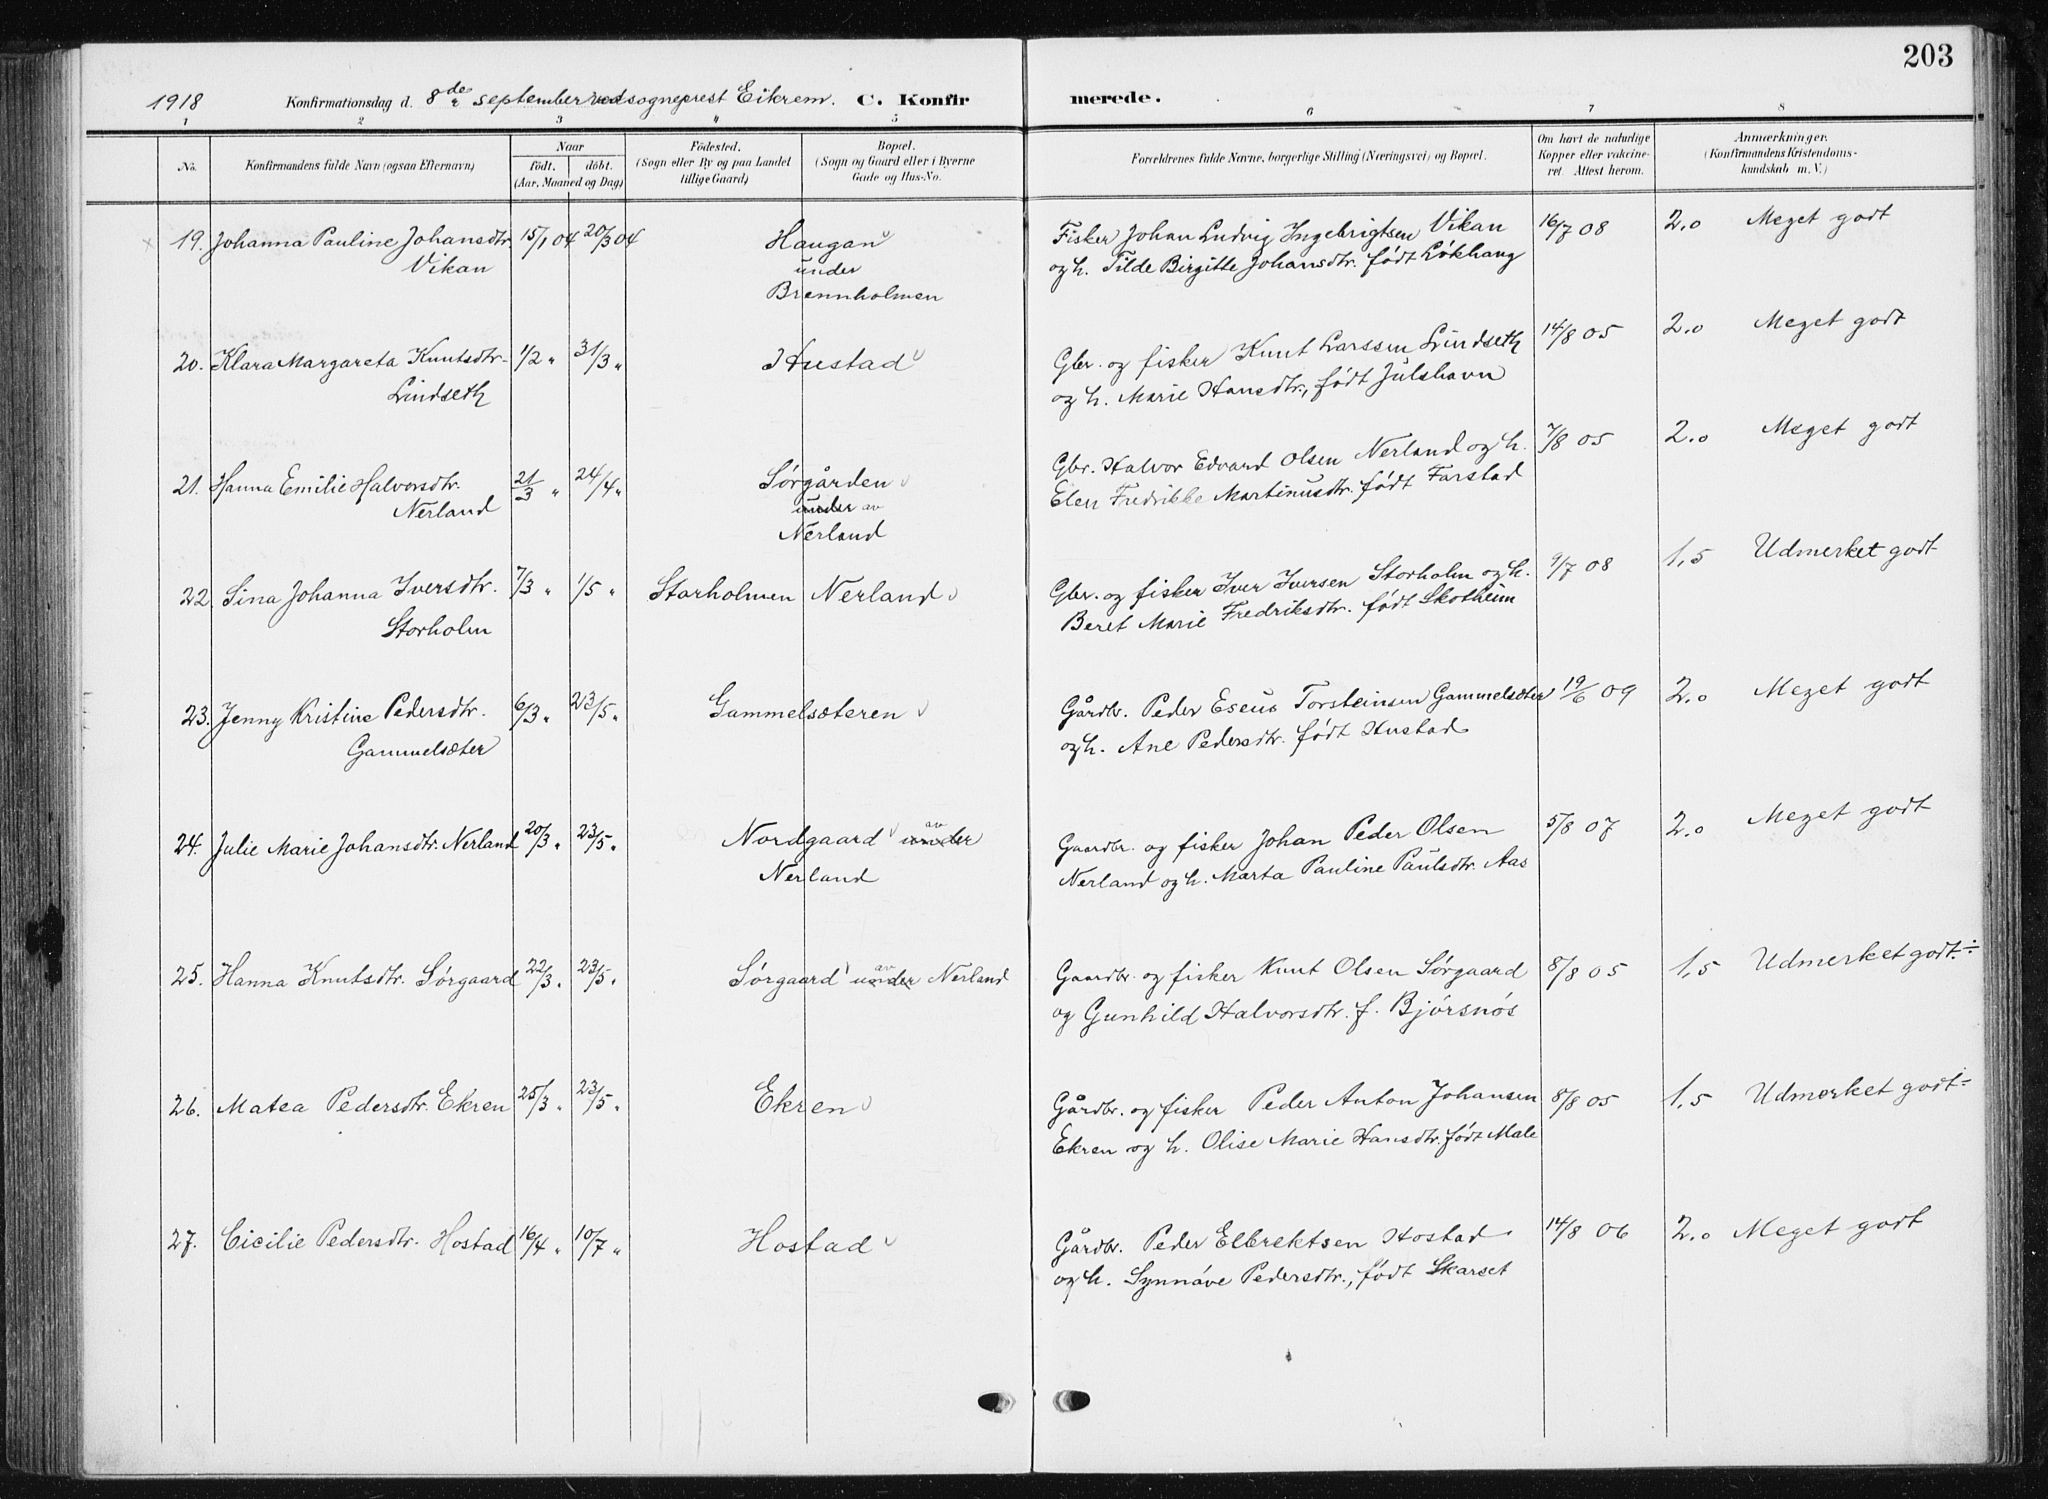 203
1918 Konfirmationsdag d. 8de september ved sogneprest Eikrem. C. Konfir merede.
1 2 3 4 5 6 7 8
No. Konfirmandens fulde Navn (ogsaa Efternavn) Naar født. døbt. (Aar, Maaned og Dag) Fødested. (Sogn eller By og paa Landet tillige Gaard) Bopæl. (Sogn og Gaard eller i Byerne Gade og Hus-No. Forældrenes fulde Navne, borgerlige Stilling (Næringsvei) og Bopæl. Om havt de naturlige Kopper eller vakcineret. Attest herom. Anmærkninger. (Konfirmandens Kristendomskundskab m. V.)
19. Johanna Pauline Johansdtr. 15/1 04 20/3 04 Haugan Fisker Johan Ludvig Ingebrigtsen Vikan 16/7 08 2.0 Meget godt
Vikan under og h. Tilde Birgitte Johansdtr. født Løkhaug
Brennholmen
20. Klara Margareta Knutsdtr. 1/2 " 31/3 " Hustad Gbr. og fisker Knut Larssen Lindseth 14/8 05 2.0 Meget godt
Lindseth og h. Marie Hansdtr., født Julshavn
21. Hanna Emilie Halvorsdtr. 21/3 " 24/4 " Sørgården Gbr. Halvor Edvard Olsen Nerland og h. 7/8 05 2.0 Meget godt
Nerland under av Elen Fredrikke Martinusdtr. født Farstad
Nerland
22. Sina Johanna Iversdtr. 7/3 " 1/5 " Storholmen Nerland Gbr. og fisker Iver Iversen Storholm og h. 9/7 08 1,5 Udmerket godt
Storholm Beret Marie Fredriksdtr. født Skotheim
23. Jenny Kristine Pedersdtr. 6/3 " 23/5 " Gammelsæteren Gårdbr. Peder Eseus Torsteinsen Gammelsæter 19/6 09 2.0 Meget godt
Gammelsæter og h. Ane Pedersdtr. født Hustad
24. Julie Marie Johansdtr. Nerland 20/3 " 23/5 " Nordgaard under av Gaardbr. og fisker Johan Peder Olsen 5/8 07 2.0 Meget godt
Nerland Nerland og h. Marta Pauline Paulsdtr. Aas
25. Hanna Knutsdtr. Sørgaard 22/3 " 23/5 " Sørgaard under av Nerland Gaardbr. og fisker Knut Olsen Sørgaard 8/8 05 1,5 Udmerket godt ÷
og Gunhild Halvorsdtr. f. Bjørsnøs
26. Matea Pedersdtr. Ekren 25/3 " 23/5 " Ekren Gårdbr. og fisker Peder Anton Johansen 8/8 05 1,5 Udmerket godt ÷
Ekren og h. Olise Marie Hansdtr. født Male
27. Cicilie Pedersdtr. Hostad 16/4 " 10/7 " Hostad Gårdbr. Peder Elbrektsen Hostad 14/8 06 2.0 Meget godt
og h. Synnøve Pedersdtr., født Skarset